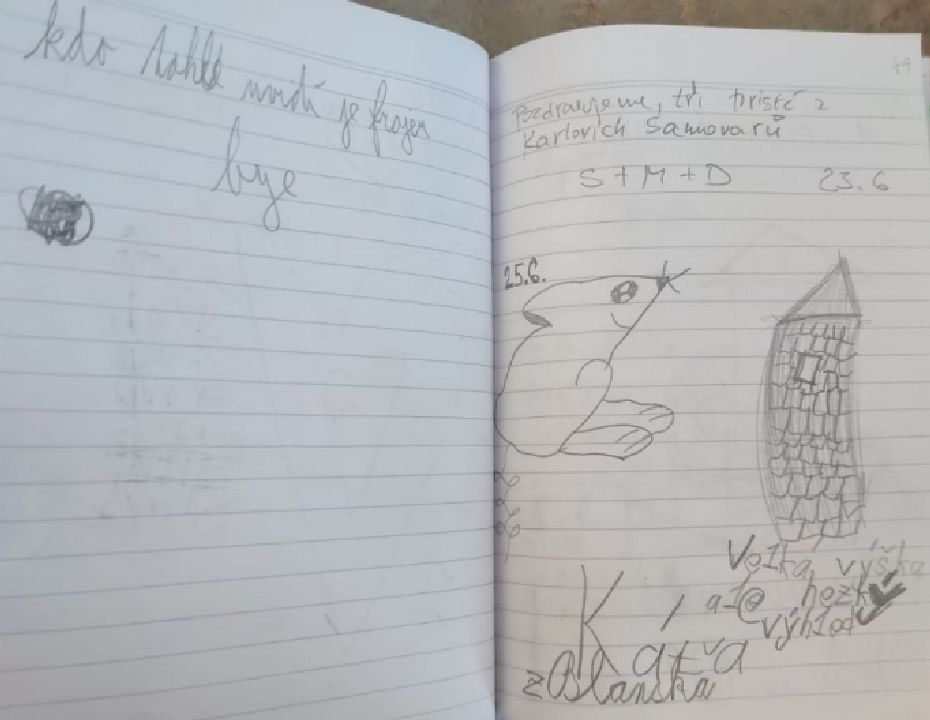 kdo tohle uvidí je frajer
bye
49
Pozdravujeme, tři turisté z
Karlovich Samovarů
S + M + D 23.6
25.6.
Velká výška
ale hezký
výhled
Káťa
z Blanska